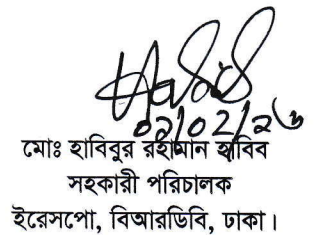 Habib
০২/০২/২৬
মোঃ হাবিবুর রহমান হাবিব
সহকারী পরিচালক
ইরেসপো, বিআরডিবি, ঢাকা।